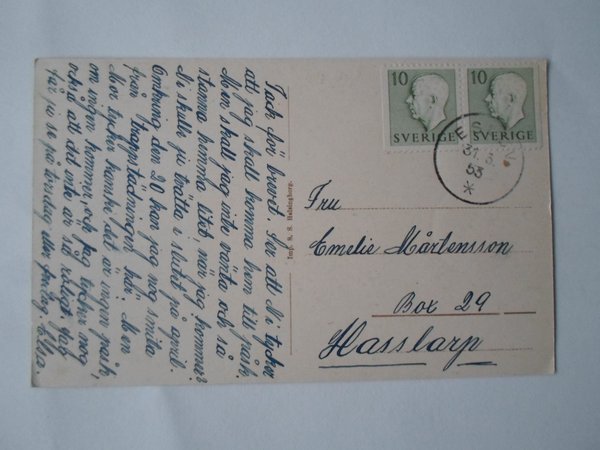 Tack för brevet. Ser att Ni tycker
att jag skall komma hem till påsk.
Men skall jag inte vänta och så
stanna hemma sedan, när jag kommer?
Ni skulle ju tvätta i slutet på april.
Omkring den 20 kan jag nog smita
från trappstädningen här. Men
Mor tycker kanske det är ingen påsk
om ingen kommer, och jag tycker nog
också att det inte är så roligt. Jag
får ju se på torsdag eller fredag. Elsa.
Imp. S. S. Helsingborg.
10
SVERIGE
10
SVERIGE
31
53
Fru
Emelie Mårtensson
Box 29
Hasslarp